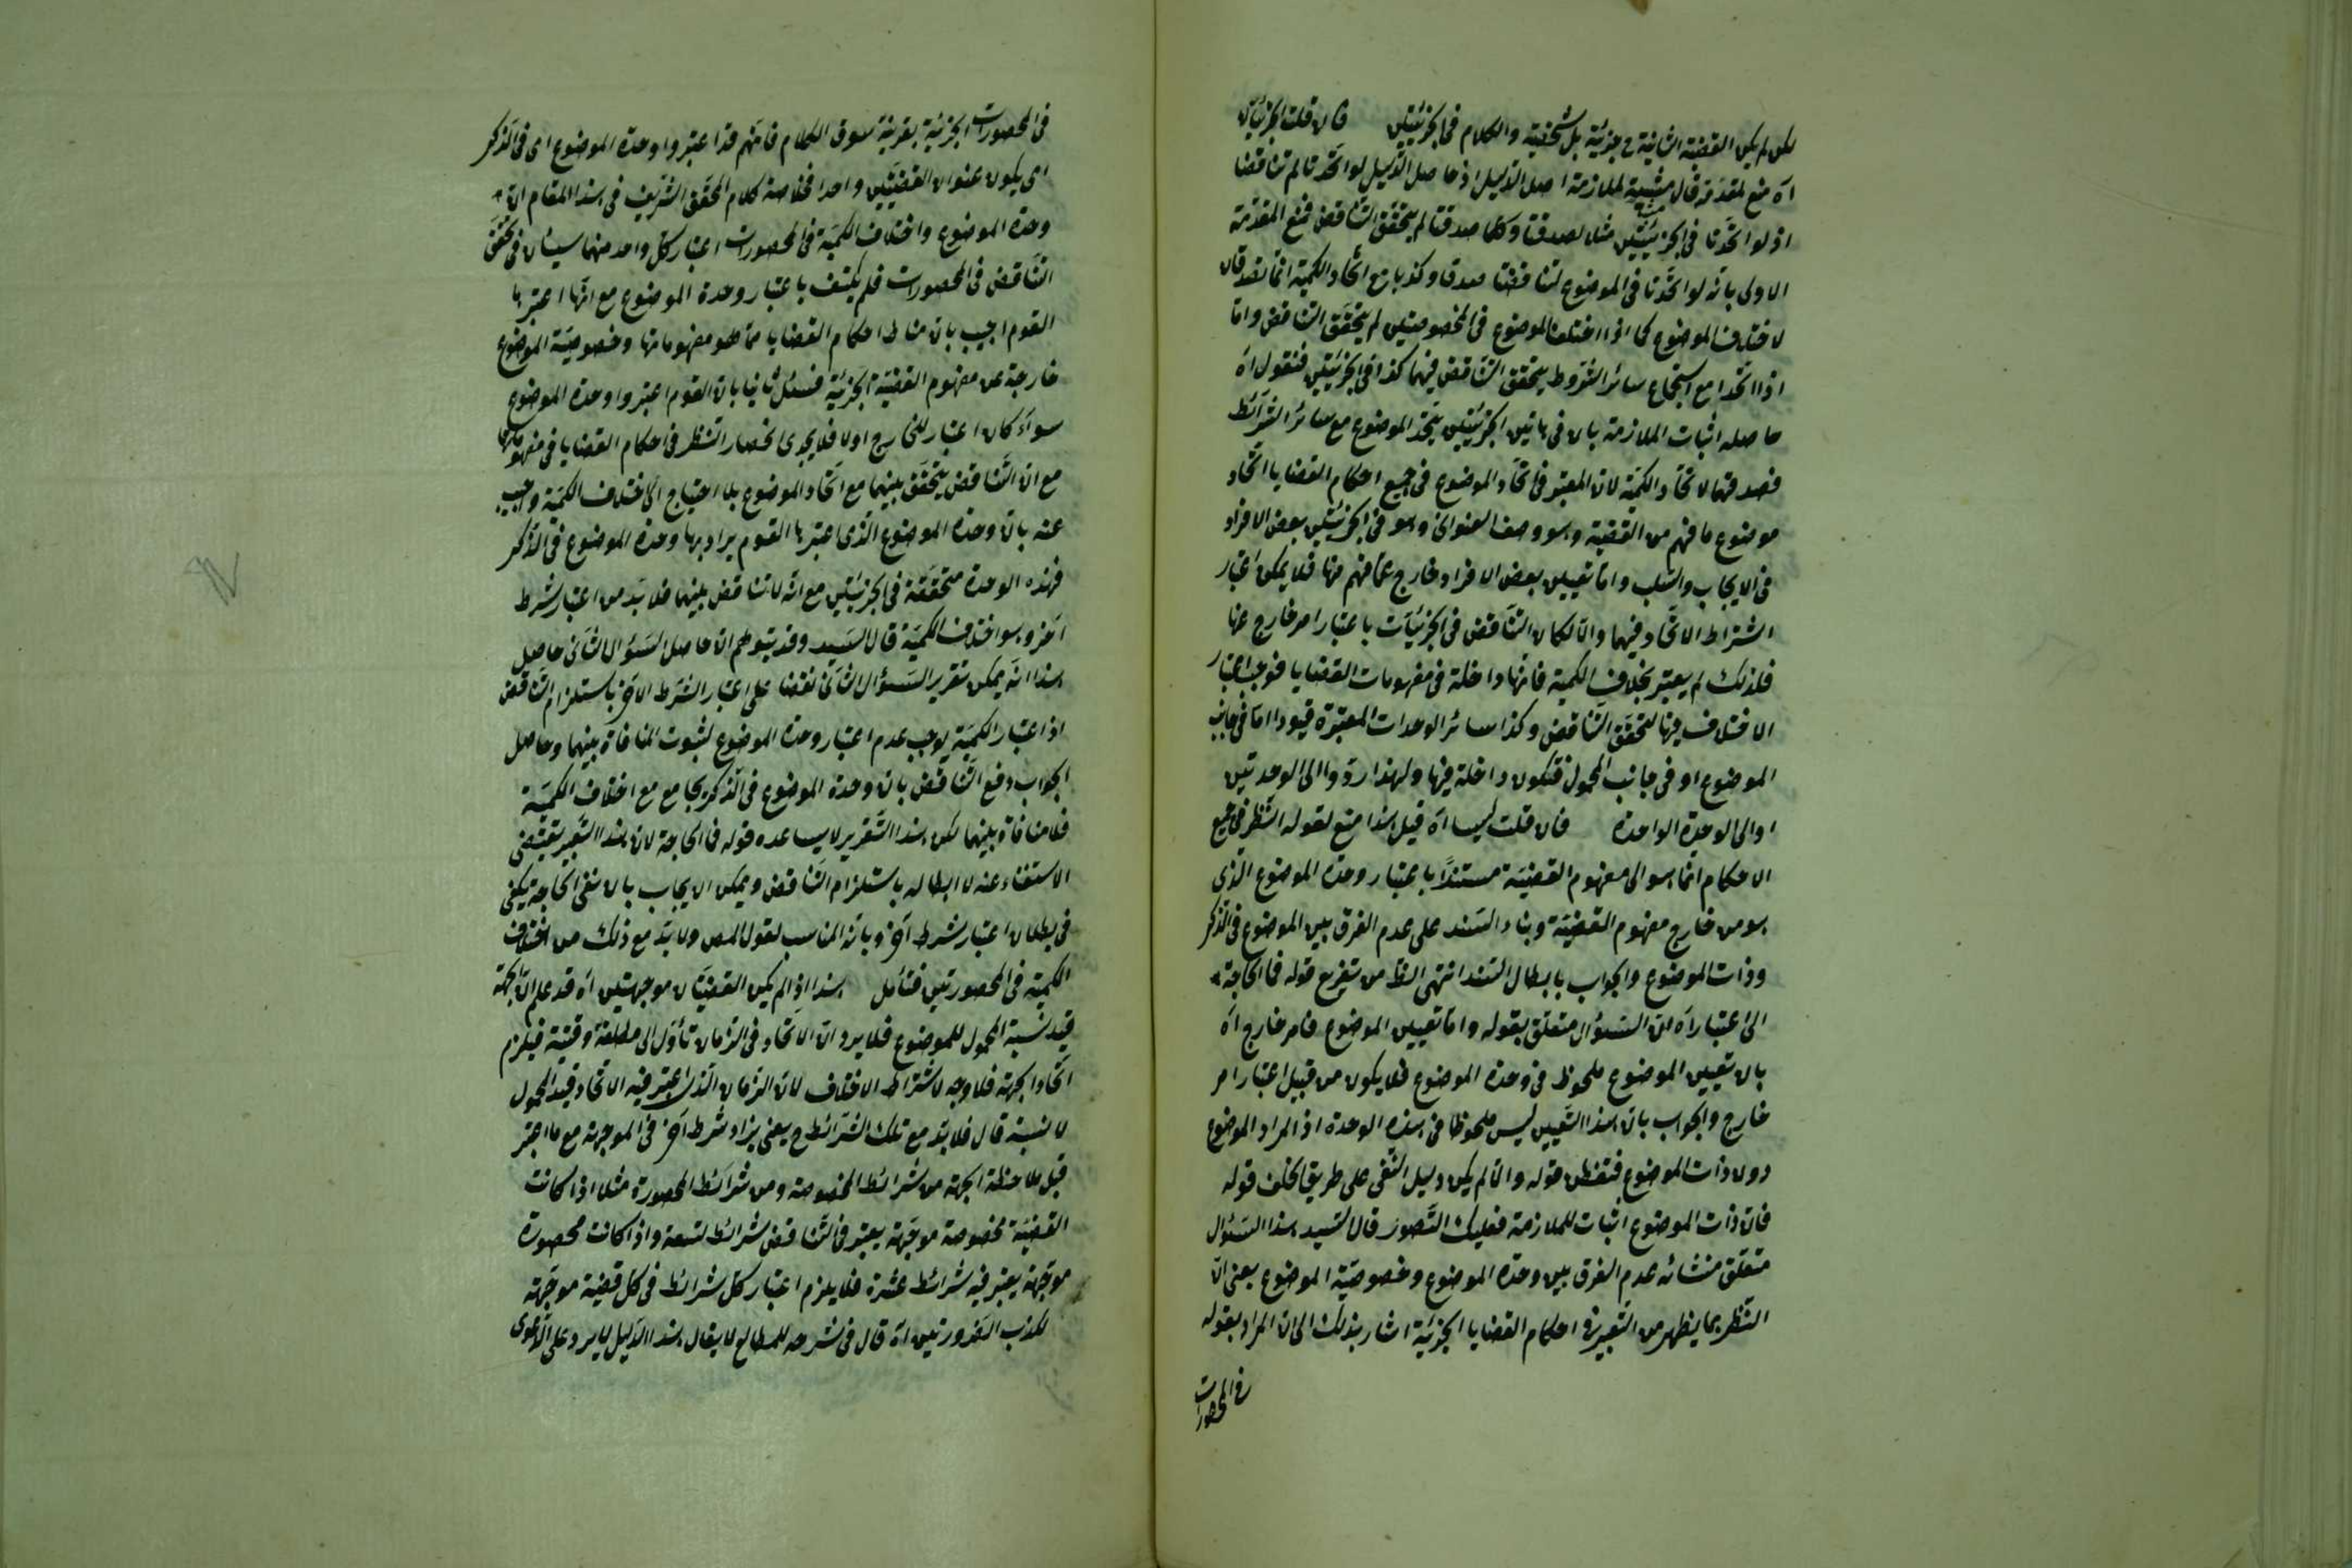 لكن لم يكن القضية الثانية ح جزئية بل شخصية والكلام فى الجزئيتين فان قلت الجزئيتان
آه منع لمقدمة قال مثبتة لملازمة اصل الدليل اذ حاصل الدليل لو اتحدتا لم تناقضا
اذ لو اتحدتا فى الجزئيتين مثلا لصدقتا وكلما صدقتا لم يتحقق التناقض فمنع المقدمة
الاولى بانه لو اتحدتا فى الموضوع لتناقضتا صدقا وكذبا مع اتحاد الكمية انما تصدقان
لاختلاف الموضوع كما اذا اختلف الموضوع فى المخصوصتين لم يتحقق التناقض واما
اذا اتحدا مع استجماع سائر الشروط يتحقق التناقض فيهما كذا فى الجزئيتين فنقول آه
حاصله اثبات الملازمة بان فى هاتين الجزئيتين يتحد الموضوع مع سائر الشرائط
فصدقهما لاتحاد الكمية لان المعتبر فى اتحاد الموضوع فى جميع احكام القضايا اتحاد
موضوع ما فهم من القضية وهو وصف العنوانى وهو فى الجزئيتين بعض الافراد
فى الايجاب والسلب واما تعيين بعض الافراد خارج عما فهم منها فلا يمكن اعتبار
اشتراط الاتحاد فيهما والا لكان التناقض فى الجزئيات باعتبار امر خارج عنها
فلذلك لم يعتبر بخلاف الكمية فانها داخلة فى مفهومات القضايا فوجب اعتبار
الاختلاف فيها لتحقق التناقض وكذا سائر الوحدات المعتبرة قيودا اما فى جانب
الموضوع او فى جانب المحمول فتكون داخلة فيها ولهذا ردوا الى الوحدتين
او الى الوحدة الواحدة فان قلت ليسا آه قيل هذا منع لقوله النظر فى جميع
الاحكام انما هو الى مفهوم القضية مستندًا باعتبار وحدة الموضوع الذى
هو من خارج مفهوم القضية وبناء السند على عدم الفرق بين الموضوع فى الذكر
وذات الموضوع والجواب بابطال السند انتهى الظ من تفريع قوله فما الحاجة
الى اعتبار آه ان السؤال متعلق بقوله واما تعيين الموضوع فامر خارج آه
بان تعيين الموضوع ملحوظ فى وحدة الموضوع فلا يكون من قبيل اعتبار امر
خارج والجواب بان هذا التعيين ليس ملحوظا فى هذه الوحدة اذ المراد الموضوع
دون ذات الموضوع فتفطن قوله والا لم يكن دليل النفى على طريق الخلف قوله
فان ذات الموضوع اثبات للملازمة فعليك التصور قال السيد هذا السؤال
متعلق منشائه عدم الفرق بين وحدة الموضوع وخصوصية الموضوع يعنى ان
النظر بما يظهر من التعبير فى احكام القضايا الجزئية اشار بذلك الى ان المراد بقوله
فى المحصورات
فى المحصورات الجزئية بقرينة سوق الكلام فانهم قد اعتبروا وحدة الموضوع اى فى الذكر
اى يكون عنوان القضيتين واحدا فخلاصة كلام المحقق الشريف فى هذا المقام ان
وحدة الموضوع واختلاف الكمية فى المحصورات اعتبار كل واحد منهما سيان فى تحقق
التناقض فى المحصورات فلم يكتف باعتبار وحدة الموضوع مع انها اعتبرها
القوم اجيب بان مناط احكام القضايا مما هو مفهوماتها وخصوصية الموضوع
خارجة عن مفهوم القضية الجزئية فسئل ثانيا بان القوم اعتبروا وحدة الموضوع
سواء كان اعتبار للخارج اولا فلا يجدى انحصار النظر فى احكام القضايا فى مفهوماتها
مع ان التناقض يتحقق بينهما مع اتحاد الموضوع بلا احتياج الى اختلاف الكمية واجيب
عنه بان وحدة الموضوع الذى اعتبرها القوم يراد بها وحدة الموضوع فى الذكر
فهذه الوحدة متحققة فى الجزئيتين مع انه لا تناقض بينهما فلا بد من اعتبار شرط
آخر وهو اختلاف الكمية قال السيد وقد يتوهم ان حاصل السؤال الثانى حاصل
هذا انه يمكن تقرير السؤال الثانى نقضا على اعتبار الشرط الآخر باستلزام التناقض
اذ اعتبار الكمية يوجب عدم اعتبار وحدة الموضوع لثبوت المنافاة بينهما وحاصل
الجواب دفع التناقض بان وحدة الموضوع فى الذكر يجامع مع اختلاف الكمية
فلا منافاة بينهما لكن هذا التقرير لا يساعده قوله فما الحاجة لان هذا التعبير يقتضى
الاستغناء عنه لا ابطاله باستلزام التناقض ويمكن الايجاب بان نفى الحاجة يكفى
فى بطلان اعتبار شرط آخر وبانه المناسب لقول المص ولا بد مع ذلك من اختلاف
الكمية فى المحصورتين فتأمل هذا اذا لم يكن القضيتان موجهتين آه قد علم ان الجهة
قيد نسبة المحمول للموضوع فلا يرد ان الاتحاد فى الزمان تأول الى مطلقة وقتية فيلزم
اتحاد الجهة فلا وجه لاشتراط الاختلاف لان الزمان الذى اعتبر فيه الاتحاد قيد المحمول
لا نسبة قال فلا بد مع تلك الشرائط ح يعنى يزاد شرط آخر فى الموجهة مع ما اعتبر
قبل ملاحظة الجهة من شرائط المخصوصة ومن شرائط المحصورة مثلا اذا كانت
القضية مخصوصة موجهة يعتبر فى التناقض شرائط تسعة واذا كانت محصورة
موجهة يعتبر فيه شرائط عشرة فلا يلزم اعتبار كل شرائط فى كل قضية موجهة
لكذب الضرورتين آه قال فى شرحه للمطالع لا يقال هذا الدليل لا يرد على الدعوى